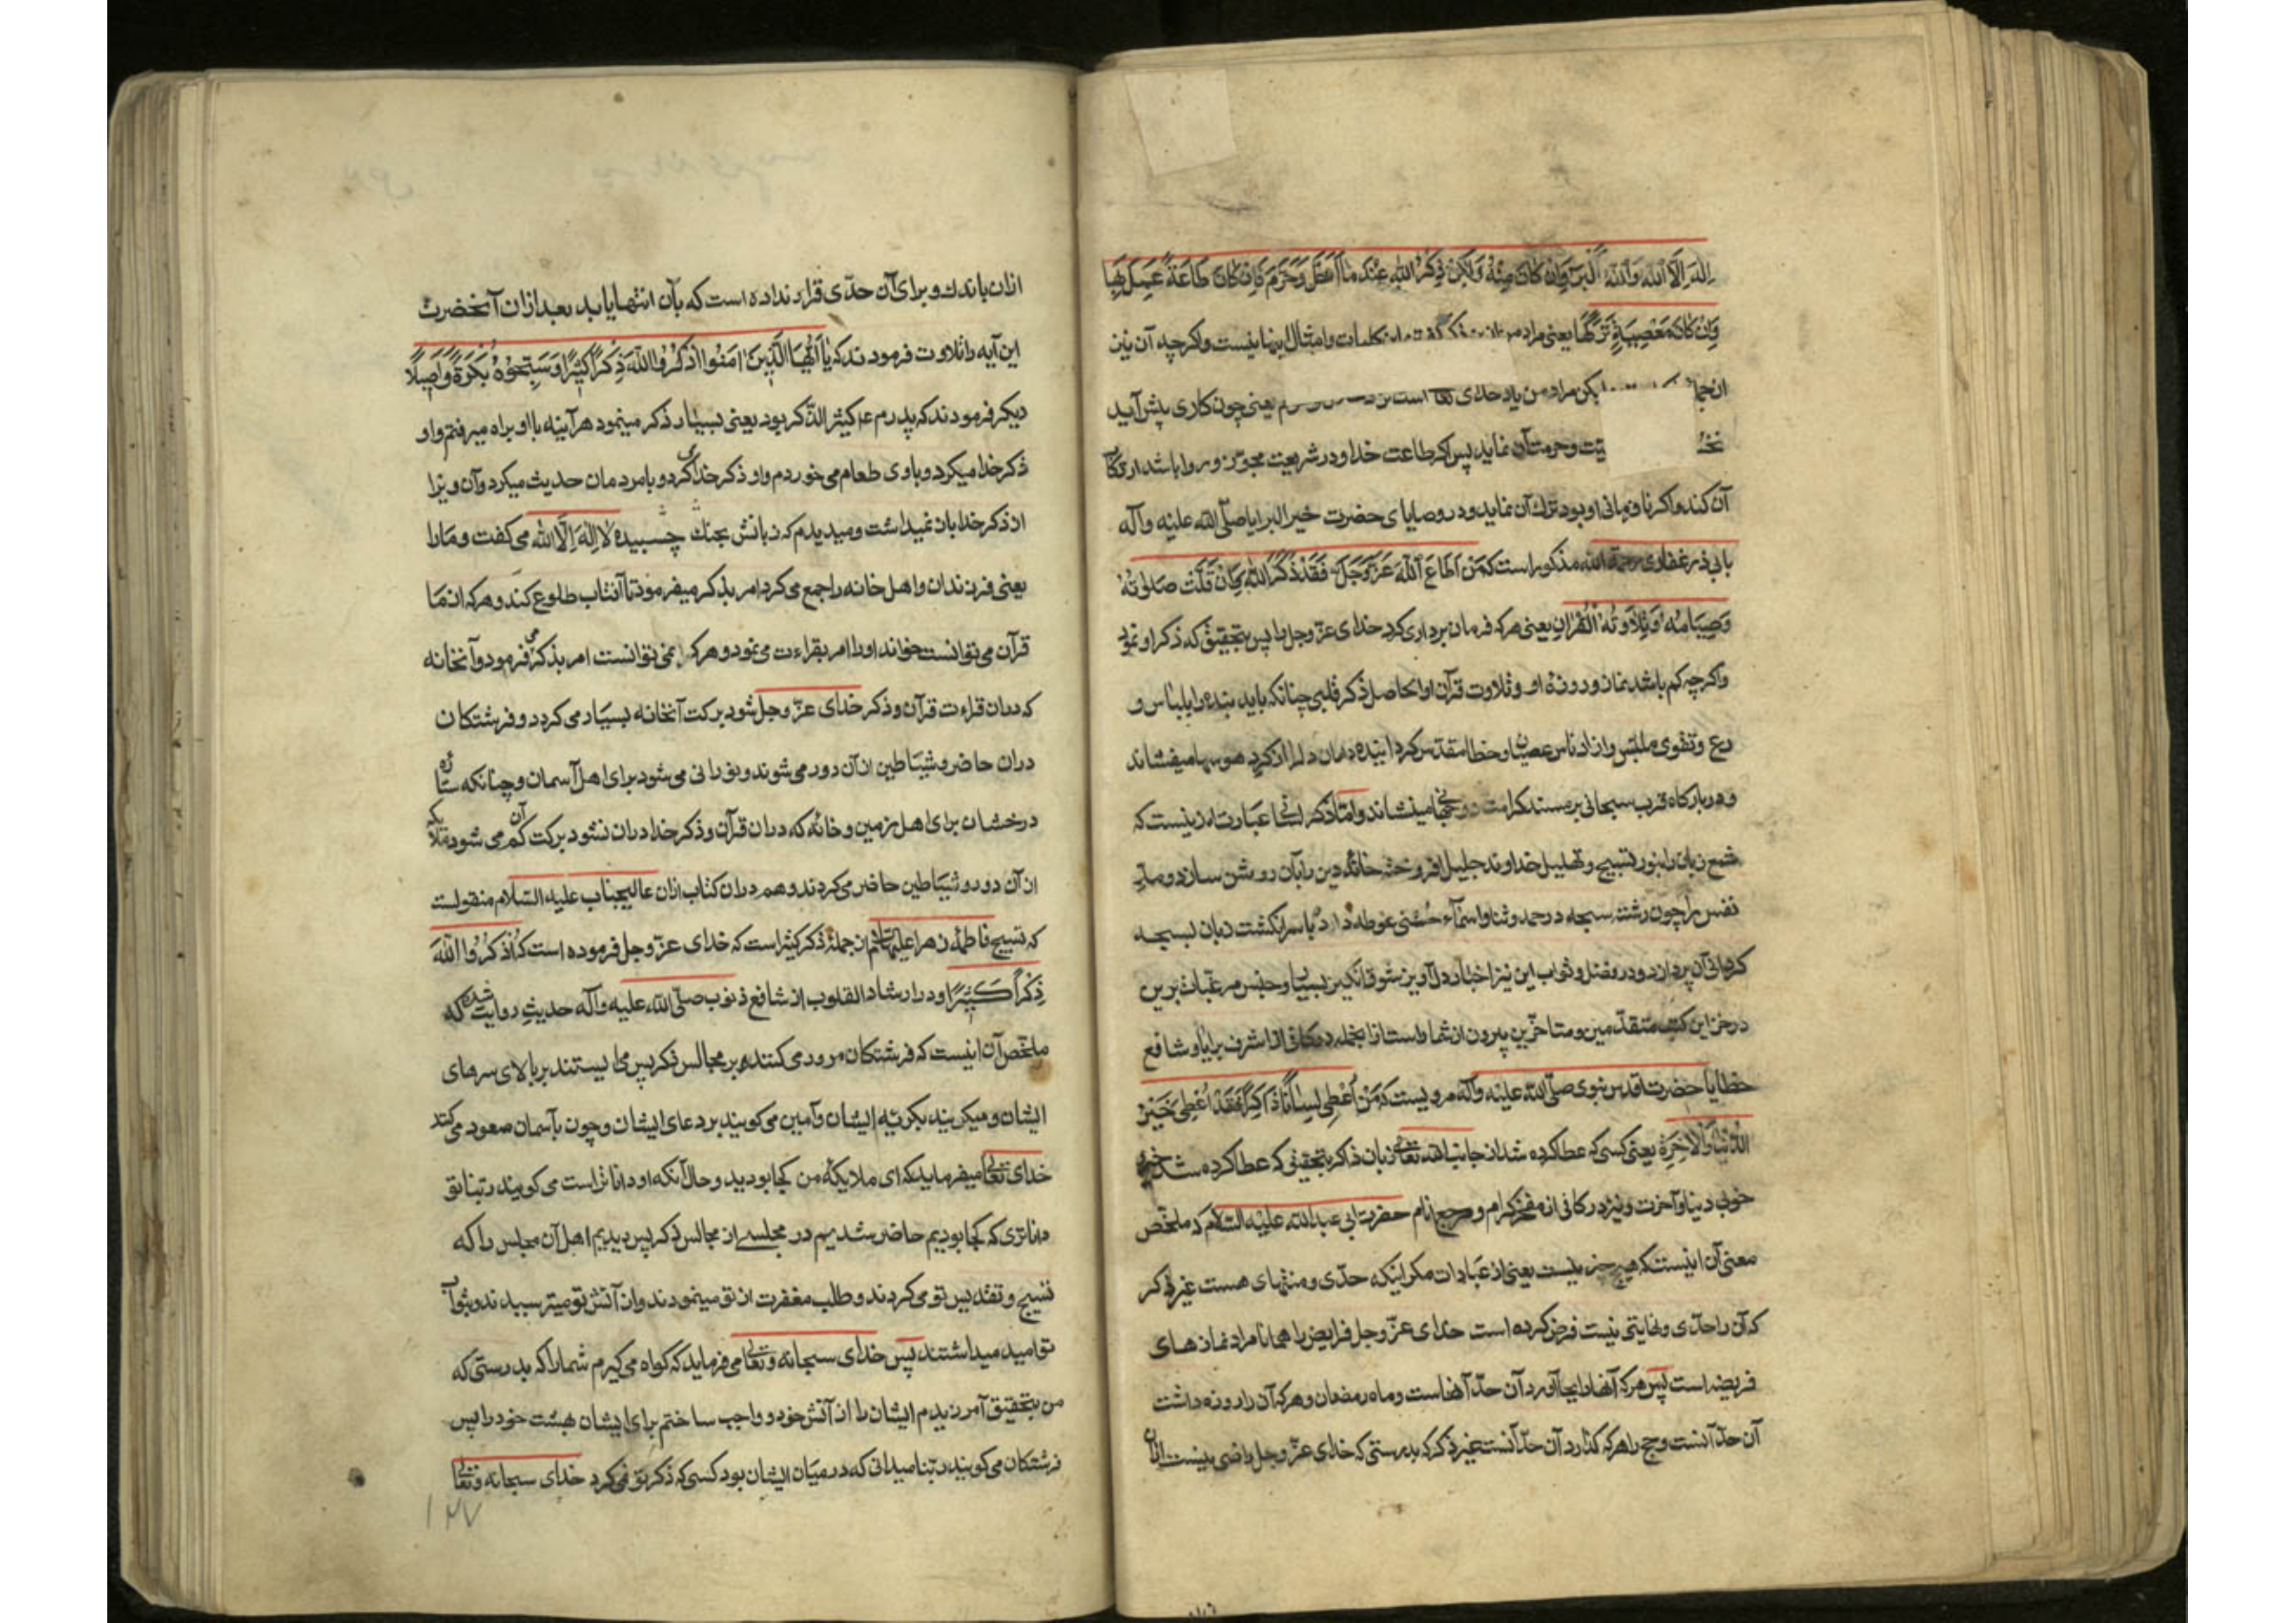 اِلٰهَ اِلَّا اللّٰه وَاللّٰهُ اَكْبَر وَاِنْ كَانَ مِنْهُ وَلٰكِنْ ذِكْرُ اللّٰهِ عِنْدَ مَا اَحَلَّ وَحَرَّمَ فَاِنْ كَانَ طَاعَةً عَمِلَ بِهَا
وَاِنْ كَانَ مَعْصِيَةً تَرَكَهَا یعنی مراد من از ذکر کلمات و امثال اینها نیست و اگرچه آن نیز
از جمله لیکن مراد من یاد خدای است نزد یعنی چون کاری پیش آید
یت و حرمت آن نماید پس اگر طاعت خدا و در شریعت مجوز و روا باشد ارتکاب
آن کند و اگر نافرمانی او بود ترک آن نماید و در وصایای حضرت خیر البرایا صلّی الله علیه وآله
بابی ذر غفاری رحمة الله مذکور است که مَنْ اَطَاعَ اللّٰهَ عَزَّوَجَلَّ فَقَدْ ذَكَرَ اللّٰهَ وَاِنْ قَلَّتْ صَلٰوتُهُ
وَصِيَامُهُ وَتِلَاوَتُهُ الْقُرْاٰنَ یعنی هر که فرمان برداری کرد خدای عزّ وجل را پس بتحقیق که ذکر او نمود
و اگرچه کم باشد نماز و روزهٔ او و تلاوت قرآن او الحاصل ذکر قلبی چنانکه باید بنده را بلباس و
رع و تقوی ملبّس و از ادناس عصیان و خطا مقدّس گردانیده دامان دلرا از گرد هوسها میفشاند
و در بارگاه قرب سبحانی بر مسند کرامت روحانی مینشاند و امّا ذکر لسانی عبارت از نیست که
شمع زبان را بنور تسبیح و تهلیل خداوند جلیل افروخته خانهٔ دین را بآن روشن سازد و مار
نفس را چون رشته سبحه در حمد و ثنا و اسمآء حسنی غوطه داد با سر انگشت زبان بسبحه
گردانی آن پردازد و در فضل و ثواب این نیز اخبار دل آویز شوق انگیز بسیار و جنس مرغبات برین
در خزاین کتب متقدّمین و متاخّرین بیرون از شمار است از انجمله در کافی از اشرف برایا و شافع
خطایا حضرت اقدس نبوی صلّی الله علیه وآله مرویست که مَنْ اُعْطِيَ لِسَانًا ذَاكِرًا فَقَدْ اُعْطِيَ خَيْرَ
الدُّنْيَا وَالْاٰخِرَةِ یعنی کسی که عطا کرده شد از جانب الله تعالی زبان ذاکر بتحقیق که عطا کرده شد
خوب دنیا و آخرت و نیز در کافی از مفخر کرام و مرجع انام حضرت ابی عبدالله علیه السّلام که ملخّص
معنی آن اینست که هیچ چیز نیست یعنی از عبادات مگر اینکه حدّی و منتهای هست غیر ذکر
که آن را حدّی و نهایتی نیست فرض کرده است خدای عزّ وجل فرایض را همانا مراد نمازهای
فریضه است پس هر که آنها را بجا آورد آن حدّ آنهاست و ماه رمضان و هر که آن را روزه داشت
آن حدّ آنست و حج را هر که گذارد آن حدّ آنست غیر ذکر که بدرستی که خدای عزّ وجل راضی نیست
ازان باندک و برای آن حدّی قرار نداده است که بآن انتها یابد بعد ازان آنحضرت
این آیه را تلاوت فرمودند که يَا اَيُّهَا الَّذِيْنَ اٰمَنُوا اذْكُرُوا اللّٰهَ ذِكْرًا كَثِيْرًا وَسَبِّحُوْهُ بُكْرَةً وَاَصِيْلًا
دیگر فرمودند که پدرم ع کثیر الذّکر بود یعنی بسیار ذکر مینمود هر آینه با او براه میرفتم و او
ذکر خدا میکرد و با وی طعام می خوردم و او ذکر خدا کردی و با مردمان حدیث میکرد و آن ویرا
از ذکر خدا باز نمیداشت و میدیدم که زبانش بحنک چسبیده لا اِلٰهَ اِلَّا اللّٰه می گفت و ما را
یعنی فرزندان و اهل خانه را جمع می کرد امر بذکر میفرمود تا آفتاب طلوع کند و هر که از ما
قرآن می توانست خواند او را امر بقراءت می نمود و هر که نمی توانست امر بذکر می فرمود و آنخانه
که دران قراءت قرآن و ذکر خدای عزّ وجل شود برکت آنخانه بسیار می گردد و فرشتکان
دران حاضر و شیاطین از آن دور می شوند و نورانی می شود برای اهل آسمان و چنانکه ستاره
درخشان برای اهل زمین و خانهٔ که دران قرآن و ذکر خدا دران نشود برکت آن کم می شود و ملائکه
از آن دور و شیاطین حاضر می گردند و هم دران کتاب ازان عالیجناب علیه السّلام منقولست
که تسبیح فاطمهٔ زهرا علیها السّلام از جملهٔ ذکر کثیر است که خدای عزّ وجل فرموده است که اُذْكُرُوا اللّٰهَ
ذِكْرًا كَثِيْرًا و در ارشاد القلوب از شافع ذنوب صلّی الله علیه وآله حدیث روایت شده که
ملخّص آن اینست که فرشتکان مرور می کنند بر مجالس ذکر پس می ایستند بر بالای سرهای
ایشان و میگریند بگریهٔ ایشان و آمین می گویند بر دعای ایشان و چون بآسمان صعود می کنند
خدای تعالی میفرماید که ای ملایکهٔ من کجا بودید و حال آنکه او داناتر است می گویند ربّنا تو
داناتری که کجا بودیم حاضر شدیم در مجلسی از مجالس ذکر پس دیدیم اهل آن مجلس را که
تسبیح و تقدیس تو می کردند و طلب مغفرت از تو مینمودند و از آتش تو میترسیدند و بثواب
تو امید میداشتند پس خدای سبحانه و تعالی می فرماید که گواه می گیرم شمارا که بدرستی که
من بتحقیق آمرزیدم ایشان را از آتش خود و واجب ساختم برای ایشان بهشت خود را پس
فرشتکان می گویند ربّنا میدانی که در میان ایشان بود کسی که ذکر تو نمی کرد خدای سبحانه و تعالی
۱۲۷